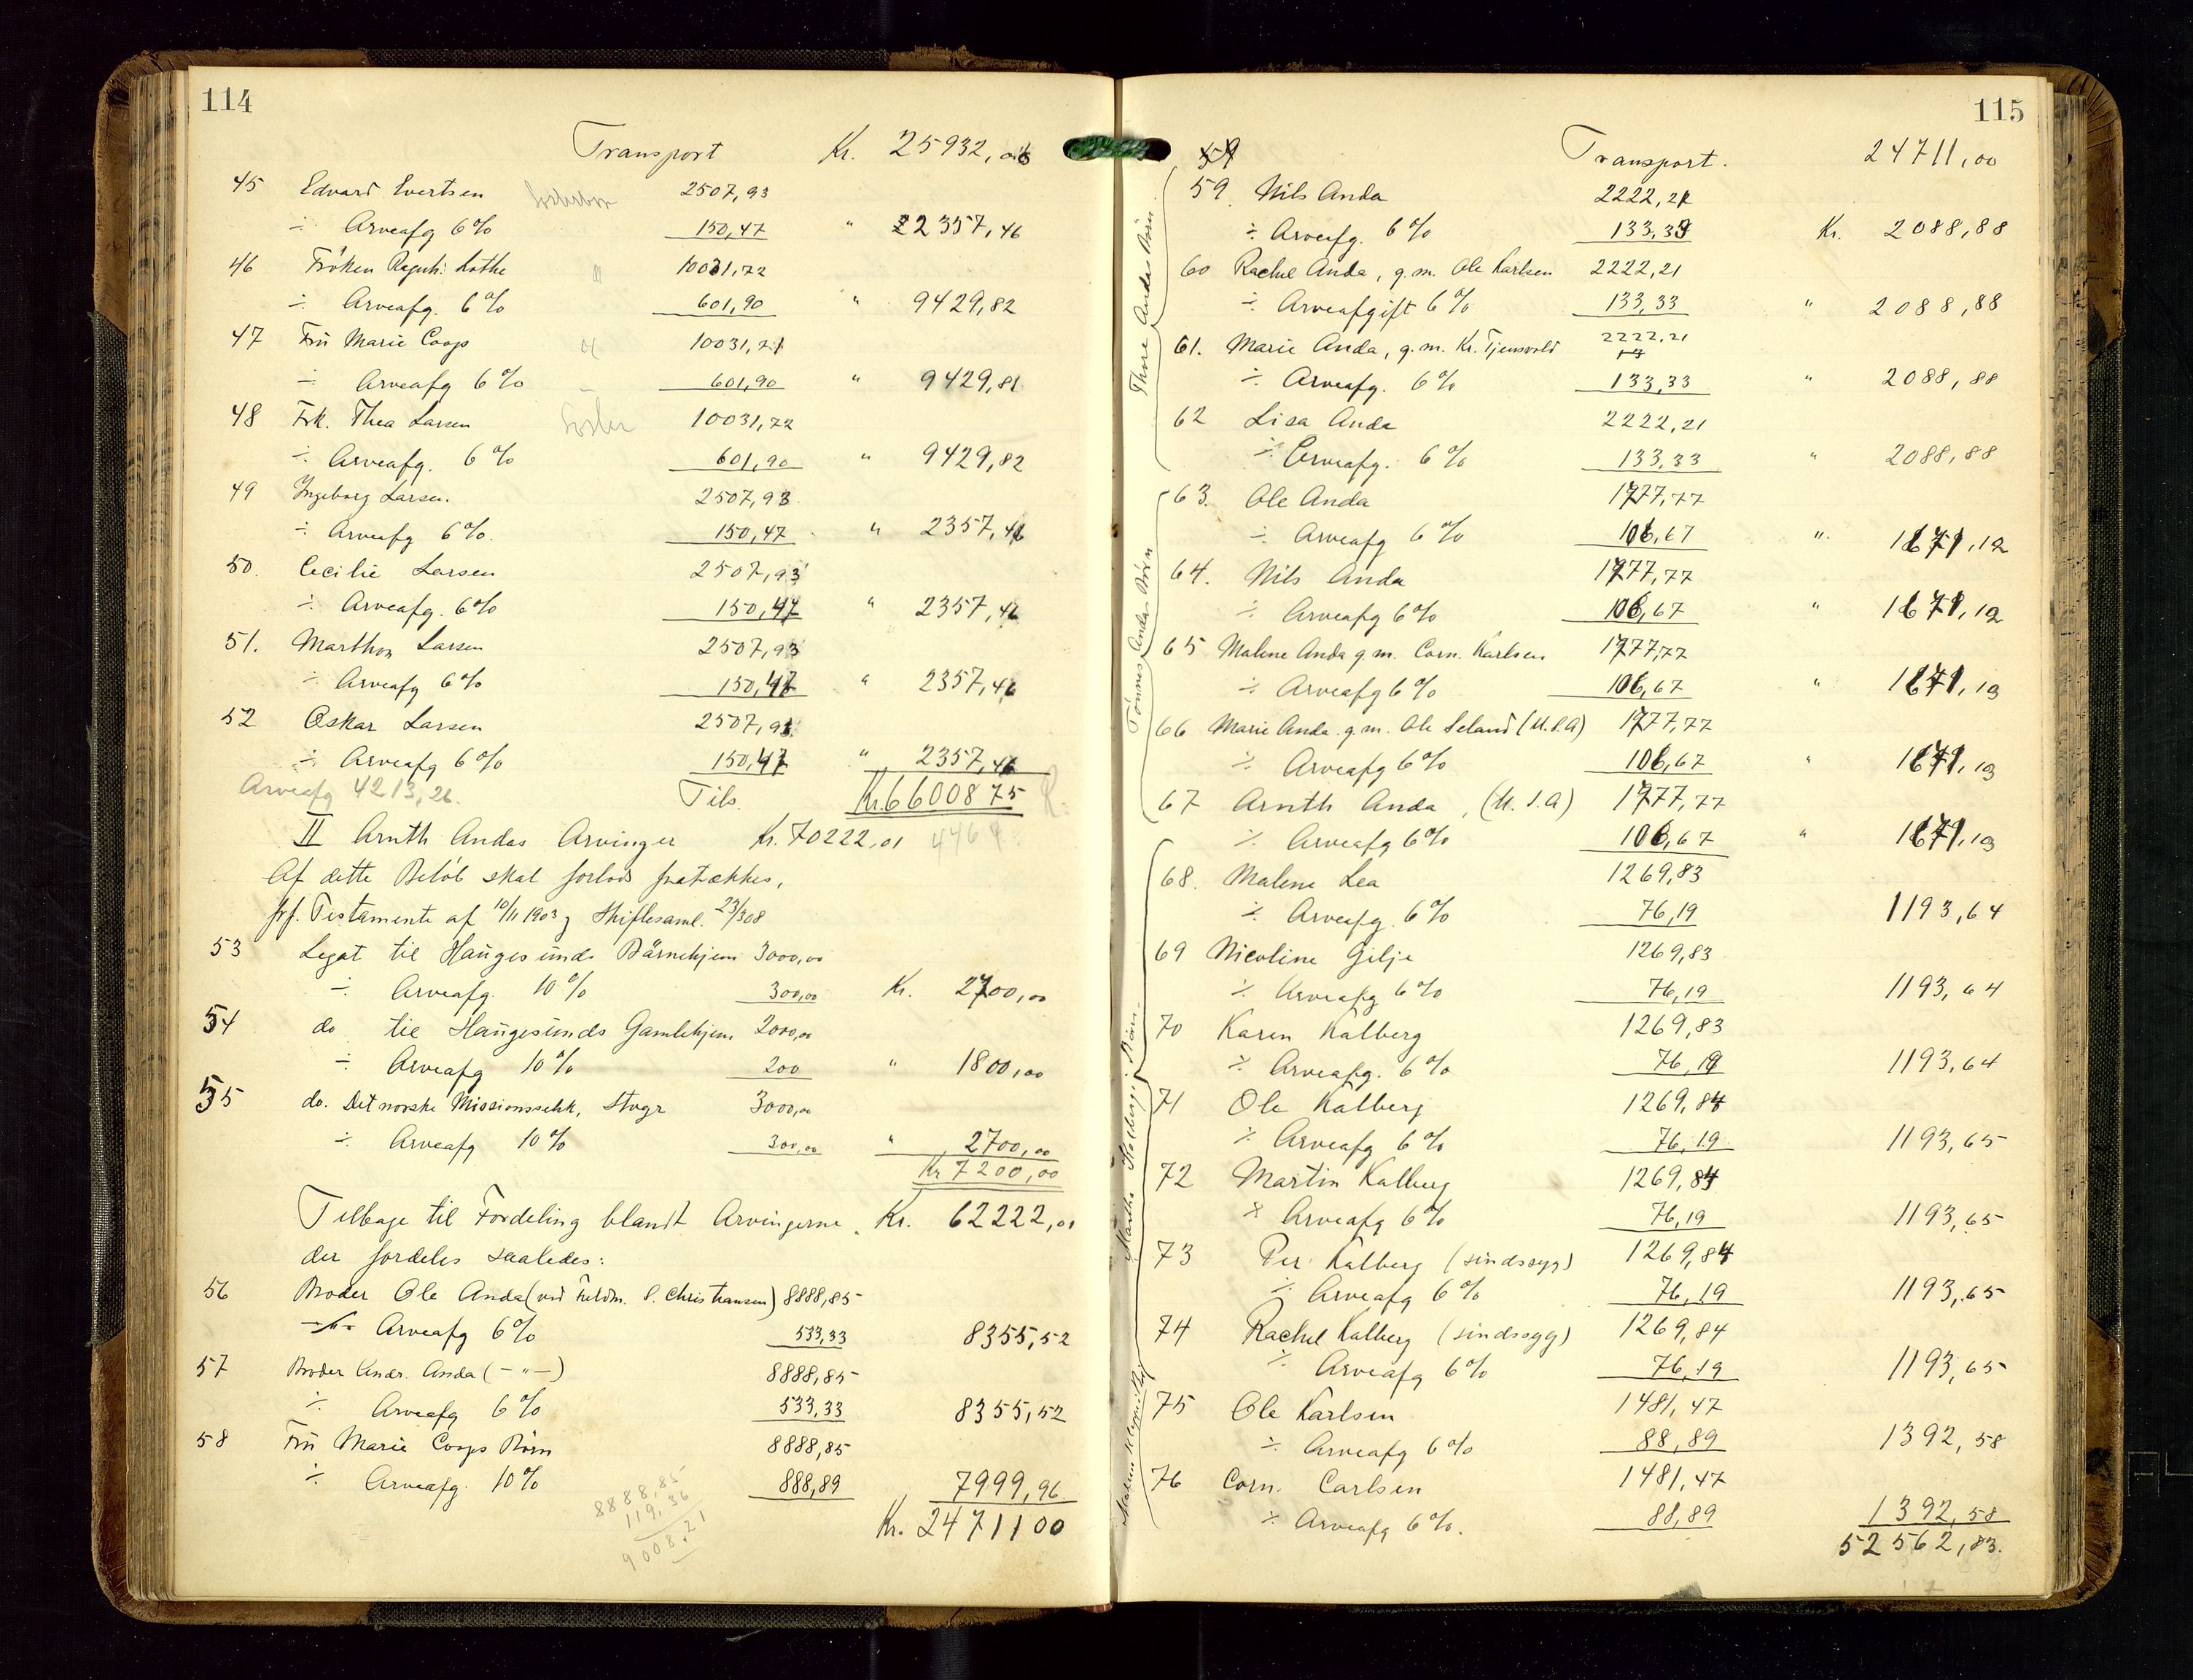 114
Transport Kr. 25932,06
45 Edvard Evertsen 2507,93
÷ Arveafg 6% 150,47 " 2357,46
46 Frøken Ragnh: Lothe 10031,72
÷ Arveafg. 6% 601,90 " 9429,82
47 Fru Marie Coops 10031,71
÷ Arveafg 6% 601,90 " 9429,81
48 Frk. Thea Larsen Søster 10031,72
÷ Arveafg. 6% 601,90 " 9429,82
49 Ingeborg Larsen. 2507,93
÷ Arveafg 6%. 150,47 " 2357,46
50. Cecilie Larsen 2507,93
÷ Arveafg. 6% 150,47 " 2357,46
51. Marthon Larsen 2507,93
÷ Arveafg 6% 150,47 " 2357,46
52 Oskar Larsen 2507,93
÷ Arveafg 6% 150,47 " 2357,46
Arveafg 4213,26. Tils. Kr 66008 75
II Arnth Andas Arvinger Kr. 70222,01 4464
Af dette Beløb skal forlods fratrækkes,
jrf. Testamente af 10/11 1903 og Skiftesaml. 23/3 08
53 Legat til Haugesunds Børnehjem 3000,00
÷ Arveafg. 10% 300,00 Kr. 2700,00
54 do til Haugesunds Gamlehjem 2000,00
÷ Arveafg 10% 200 " 1800,00
55 do. Det norske Missionsselsk, Stvgr 3000,00
÷ Arveafg 10% 300,00 " 2700,00
Kr 7200,00
Tilbage til Fordeling blandt Arvingerne. Kr. 62222,01
der fordeles saaledes:
56 Broder Ole Anda (ved Fuldm. S. Christiansen) 8888,85
÷ Arveafg 6% 533,33 8355,52
57 Broder Andr. Anda (- " -) 8888,85
÷ Arveafg 6% 533,33 8355,52
58 Fru Marie Coops Børn 8888,85
÷ Arveafg. 10% 888,89 7999,96
8888,85
119,36
9008,21
Kr. 24711 00
115
59 Transport. 24711,00
Thore Andas Børn
59. Nils Anda 2222,21
÷ Arveafg. 6% 133,33 Kr. 2088,88
60 Rachel Anda, g.m. Ole Karlsen 2222,21
÷ Arveafgift 6% 133,33 " 2088,88
61. Marie Anda, g.m. Kr. Tjensvold 2222,21
÷ Arveafg. 6% 133,33 " 2088,88
62 Lisa Anda 2222,21
÷ Arveafg. 6% 133,33 " 2088,88
Tønnes Andas Børn
63. Ole Anda 1777,77
÷ Arveafg 6% 106,67 " 1671,12
64. Nils Anda 1777,77
÷ Arveafg 6% 106,67 " 1671,12
65 Malene Anda g.m. Corn. Karlsen 1777,77
÷ Arveafg 6% 106,67 " 1671,13
66 Marie Anda. g.m. Ole Seland (U.S.A) 1777,77
÷ Arveafg 6% 106,67 " 1671,13
67 Arnth Anda, (U.S.A) 1777,77
÷ Arveafg 6% 106,67 " 1671,13
68. Malene Lea 1269,83
÷ Arveafg. 6% 76,19 1193,64
69 Nicoline Gilje 1269,83
÷ Arveafg 6% 76,19 1193,64
70 Karen Kalberg 1269,83
÷ Arveafg. 6% 76,19 1193,64
71 Ole Kalberg 1269,84
÷ Arveafg 6% 76,19 1193,65
72 Martin Kalberg 1269,84
÷ Arveafg 6% 76,19 1193,65
73 Per Kalberg (sindssyg) 1269,84
÷ Arveafg 6% 76,19 1193,65
74 Rachel Kalberg (sindssyg) 1269,84
÷ Arveafg 6% 76,19 1193,65
75 Ole Karlsen 1481,47
÷ Arveafg 6% 88,89 1392,58
76 Corn. Carlsen 1481,47
÷ Arveafg 6%. 88,89 1392,58
52562,83.